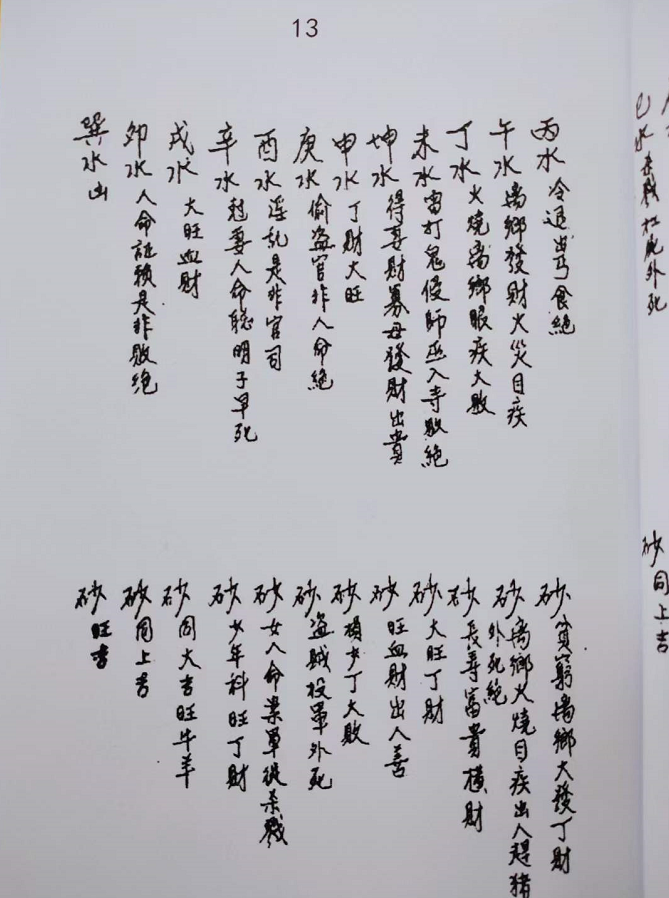 13
丙水 冷退出丐食絕
午水 离鄉發財火災目疾
丁水 火燒离鄉眼疾大敗
未水 雷打鬼侵師巫入寺敗絕
坤水 得妻財寡母發財出貴
申水 丁財大旺
庚水 偷盗官非人命絕
酉水 淫乱是非官司
辛水 妻人命聪明子早死
戌水 大旺血財
卯水 人命証賴是非敗絕
巽水出
砂 貧窮离鄉大發丁財
砂 离鄉火燒目疾出人趕猪
外死絕
砂 長寿富貴橫財
砂 大旺丁財
砂 旺血財出人善
砂 損少丁大敗
砂 盗賊投軍外死
砂 女人命案軍徒杀戮
砂 少年科旺丁財
砂 同大吉旺牛羊
砂 同上吉
砂 旺吉
水 杀戮 外死
砂 同上吉